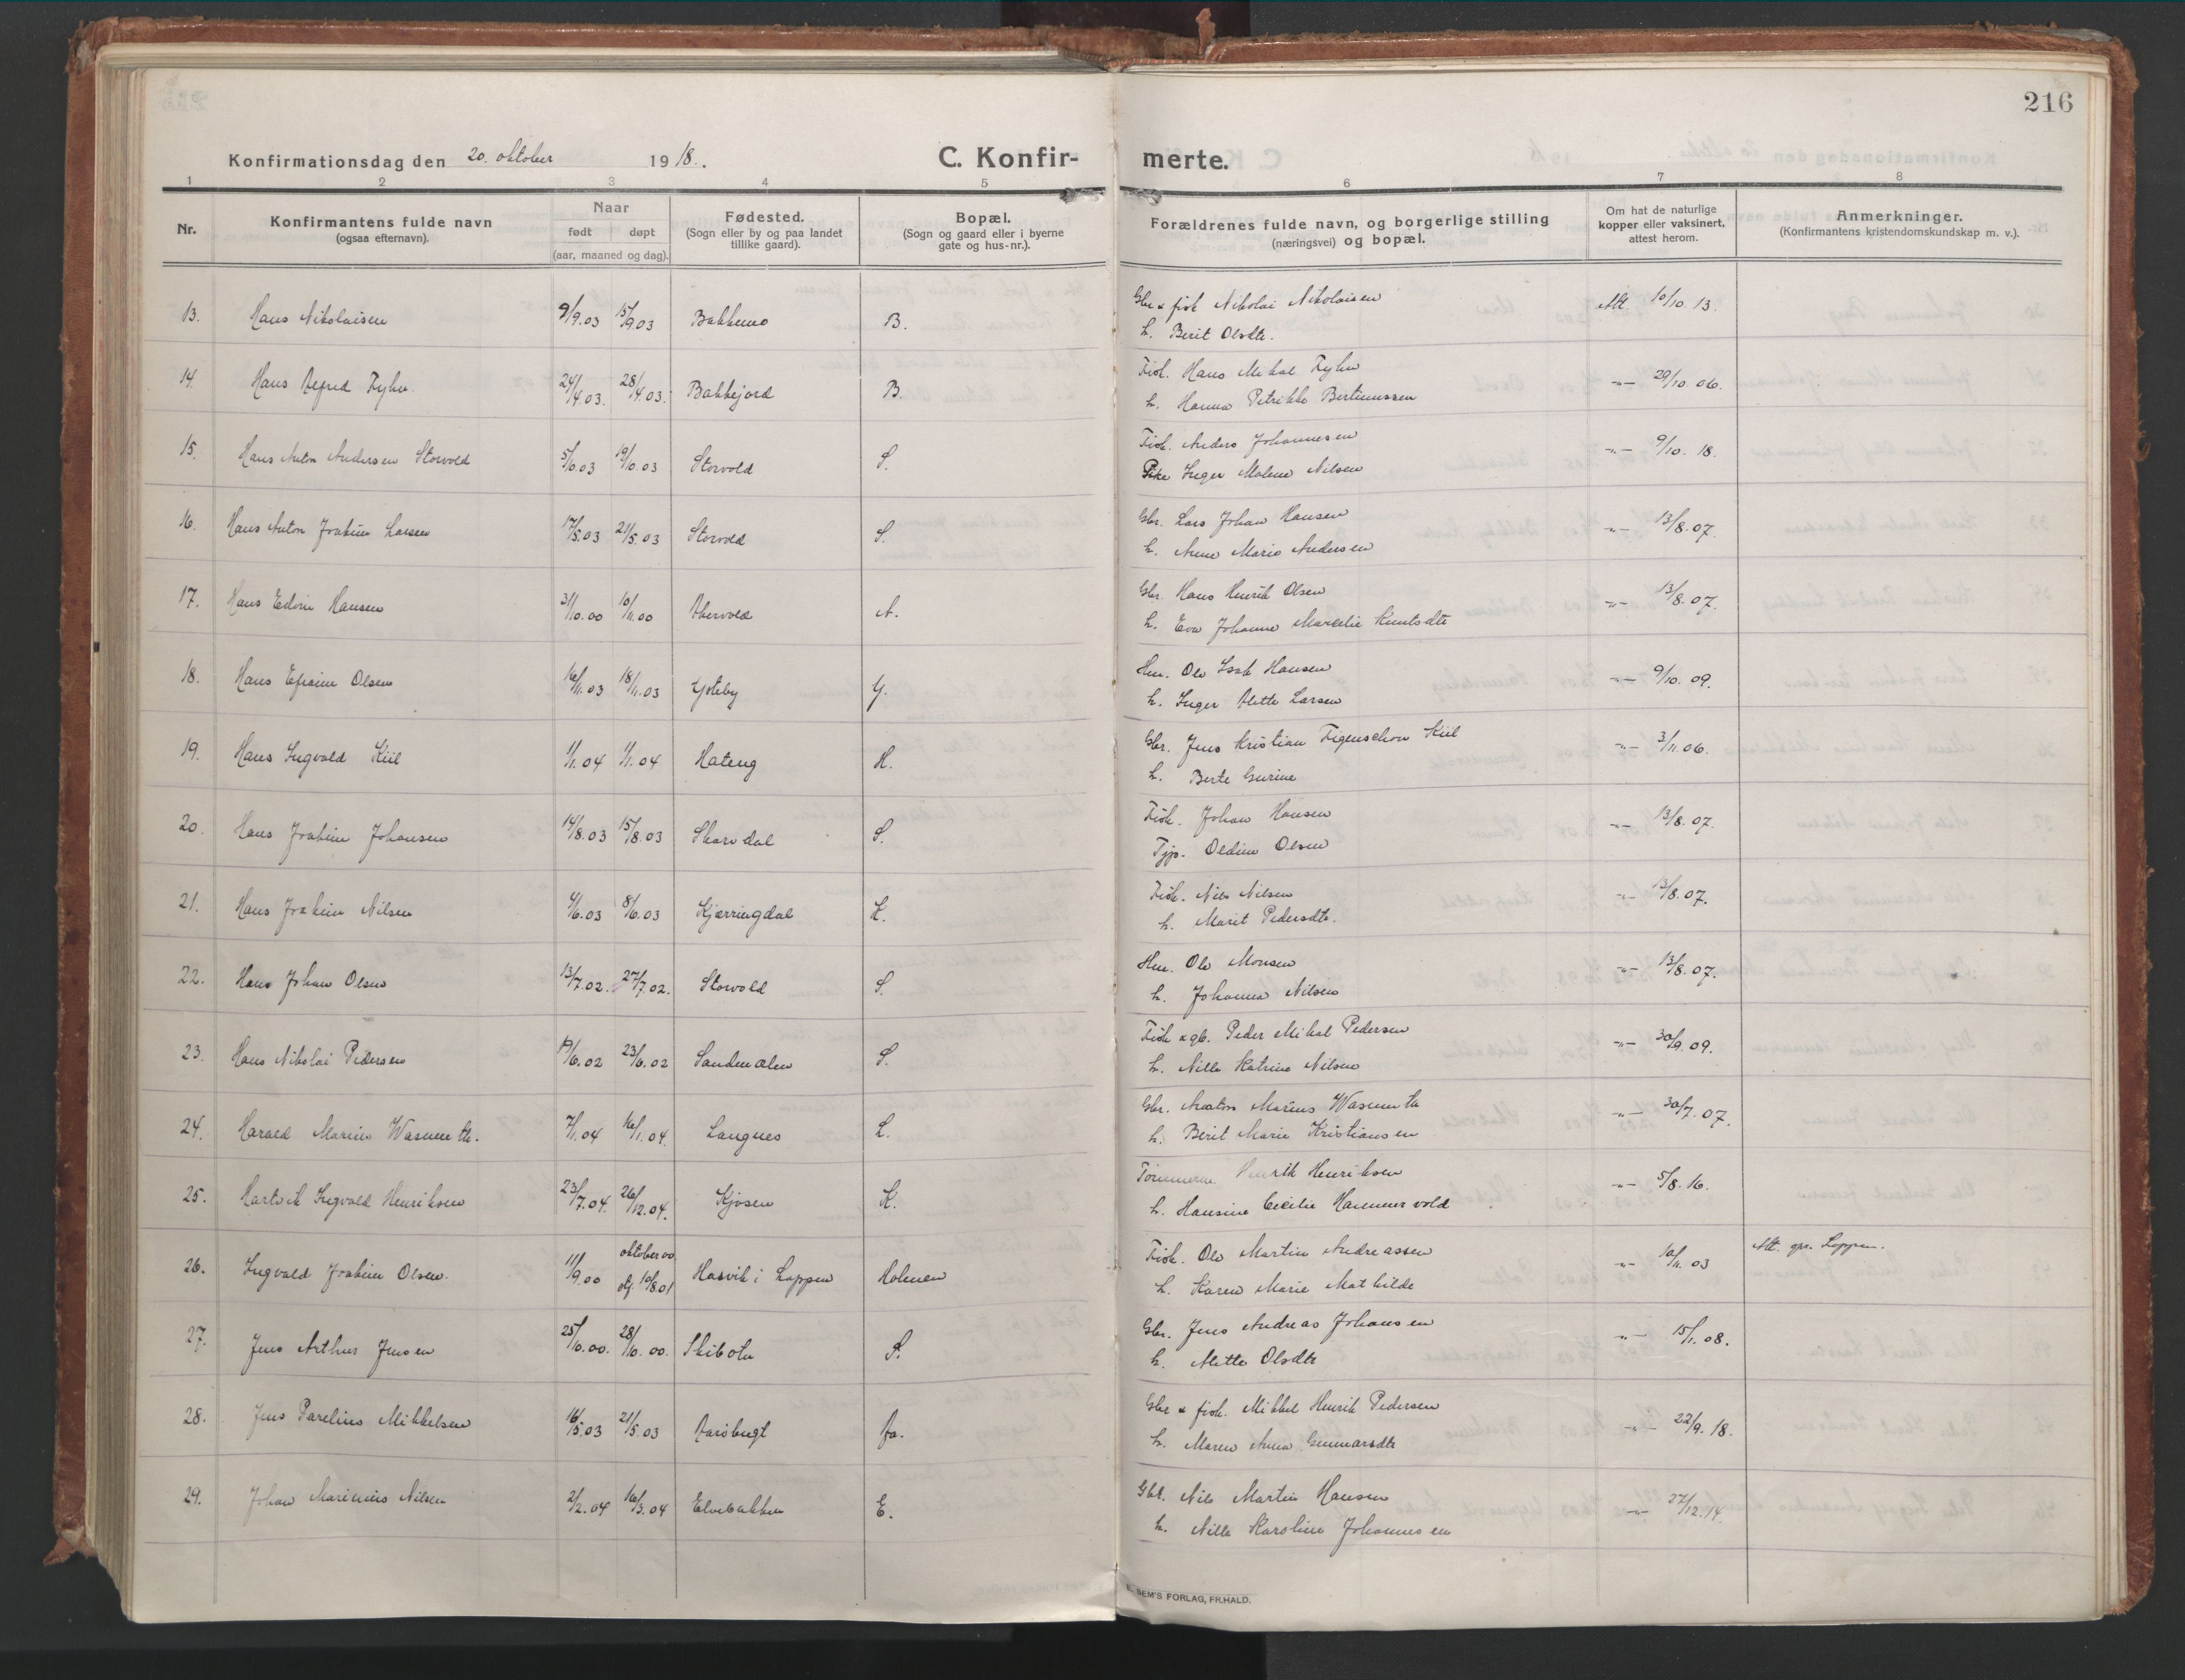 216
Konfirmationsdag den 20. oktober 1918. C. Konfir- merte.
1 2 3 4 5 6 7 8
Nr. Konfirmantens fulde navn (ogsaa efternavn). Naar født døpt (aar, maaned og dag). Fødested. (Sogn eller by og paa landet tillike gaard). Bopæl. (Sogn og gaard eller i byerne gate og hus-nr.). Forældrenes fulde navn, og borgerlige stilling (næringsvei) og bopæl. Om hat de naturlige kopper eller vaksinert, attest herom. Anmerkninger. (Konfirmantens kristendomskundskap m. v.).
13. Hans Nikolaisen 9/9.03 15/9.03 Bakkemo B. Gbr & fisk Nikolai Nikolaisen Att. 10/10.13.
h. Berit Olsdtr.
14. Hans Alfred Fyhn 24/4.03. 28/4.03. Bakkejord B. Fisk. Hans Mikal Fyhn -"- 29/10.06.
h. Hanna Petrikke Bertinussen
15. Hans Anton Andersen Storvold 5/10.03 19/10.03 Storvold S. Fisk. Anders Johannesen -"- 9/10.18.
Pike Inger Malene Nilsen
16. Hans Anton Joakim Larsen 17/5.03 21/5.03 Storvold S. Gbr. Lars Johan Hansen -"- 13/8.07.
h. Anne Marie Andersen
17. Hans Edvin Hansen 31/10.00 10/11.00 Aborvold A. Gbr. Hans Henrik Olsen -"- 13/8.07.
h. Eva Johanne Marcelie Knutsdtr
18. Hans Efraim Olsen 16/11.03 18/11.03 Goteby G. Hm. Ole Isak Hansen -"- 9/10.09.
h. Inger Alette Larsen
19. Hans Ingvald Kiil 1/1.04 1/1.04 Hateng H. Gbr. Jens Kristian Figenschou Kiil -"- 3/11.06.
h. Berte Gurine
20. Hans Joakim Johansen 14/8.03 15/8.03 Skardal S. Fisk. Johan Hansen -"- 13/8.07.
Tjp. Oldine Olsen
21. Hans Joakim Nilsen 4/6.03 8/6.03 Kjærringdal K. Fisk. Nils Nilsen -"- 13/8.07.
h. Marit Pedersdtr.
22. Hans Johan Olsen 13/7.02. 27/7.02. Storvold S. Hm. Ole Monsen -"- 13/8.07.
h. Johanna Nilsen
23. Hans Nikolai Pedersen 19/6.02 23/6.02 Sandmælen S. Fisk & gb. Peder Mikal Pedersen -"- 30/9.09.
h. Nille Katrine Nilsen
24. Harald Marius Wasmuth. 7/1.04 16/1.04. Langnes L. Gbr. Anton Marius Wasmuth -"- 30/7.07.
h. Berit Marie Kristiansen
25. Hartvik Ingvald Henriksen 23/7.04. 26/12.04. Kjosen K. Tømmerm. Henrik Henriksen -"- 5/8.16.
h. Hansine Cecilie Hammervold
26. Ingvald Joakim Olsen. 11/9.00 oktober 00. Hasvik i Loppen Holmen Fisk. Ole Martin Andreassen -"- 10/11.03 Att. spr. Loppen.
10/8.01 h. Karen Marie Mathilde
27. Jens Arthur Jensen 25/10.00. 28/10.00. Skibotn S. Gbr. Jens Andreas Johansen -"- 15/1.08.
h. Mette Olsdtr
28. Jens Parelius Mikkelsen 16/5.03 21/5.03 Aarøbugt Aa. Gbr & fisk. Mikkel Henrik Pedersen -"- 22/9.18.
h. Maren Anna Gunnarsdtr
29. Johan Marinius Nilsen 2/2.04 16/3.04 Elvebakken E. Gbr. Nils Martin Hansen -"- 27/12.14.
h. Nille Karoline Johannesen
SEM'S FORLAG, FR.HALD.